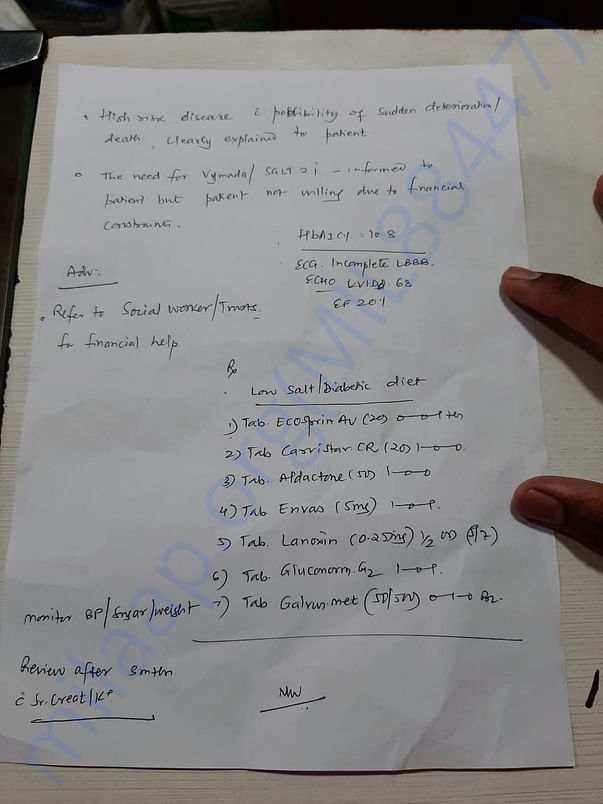 • High risk disease c̄ possibility of sudden deterioration/
death. clearly explained to patient.
• The need for Vymada/SGLT2i - informed to
patient but patient not willing due to financial
constraint.
HbA1C%: 10.8
ECG. Incomplete LBBB.
ECHO LVIDd: 68
EF 20%
Adv:.
• Refer to Social worker/
for financial help.
Rx
. Low Salt/Diabetic diet
1) Tab. ECOSprin AV (20) 0—0—1
2) Tab Carvistar CR (20) 1—0—0.
3) Tab. Aldactone (50) 1—0—0
4) Tab Envas (5mg) 1—0—1.
5) Tab. Lanoxin (0.25mg) 1/2 OD (5/7)
6) Tab. Gluconorm.G2 1—0—1.
monitor BP/Sugar/weight 7) Tab Galvus.met (50/500) 0—1—0
Review after 3mth
c̄ Sr.Creat/K+
milaap.org(MIL88447)